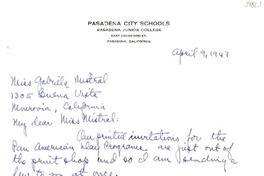 PASADENA CITY SCHOOLS
PASADENA JUNIOR COLLEGE
PASADENA, CALIFORNIA
April 9, 1947
Miss Gabriela Mistral
1305 Buena Vista
Monrovia, California
My dear Miss Mistral:
Our printed invitations for the
Pan American Day Programs are just out of
the print shop and so I am sending a
few to you at once.